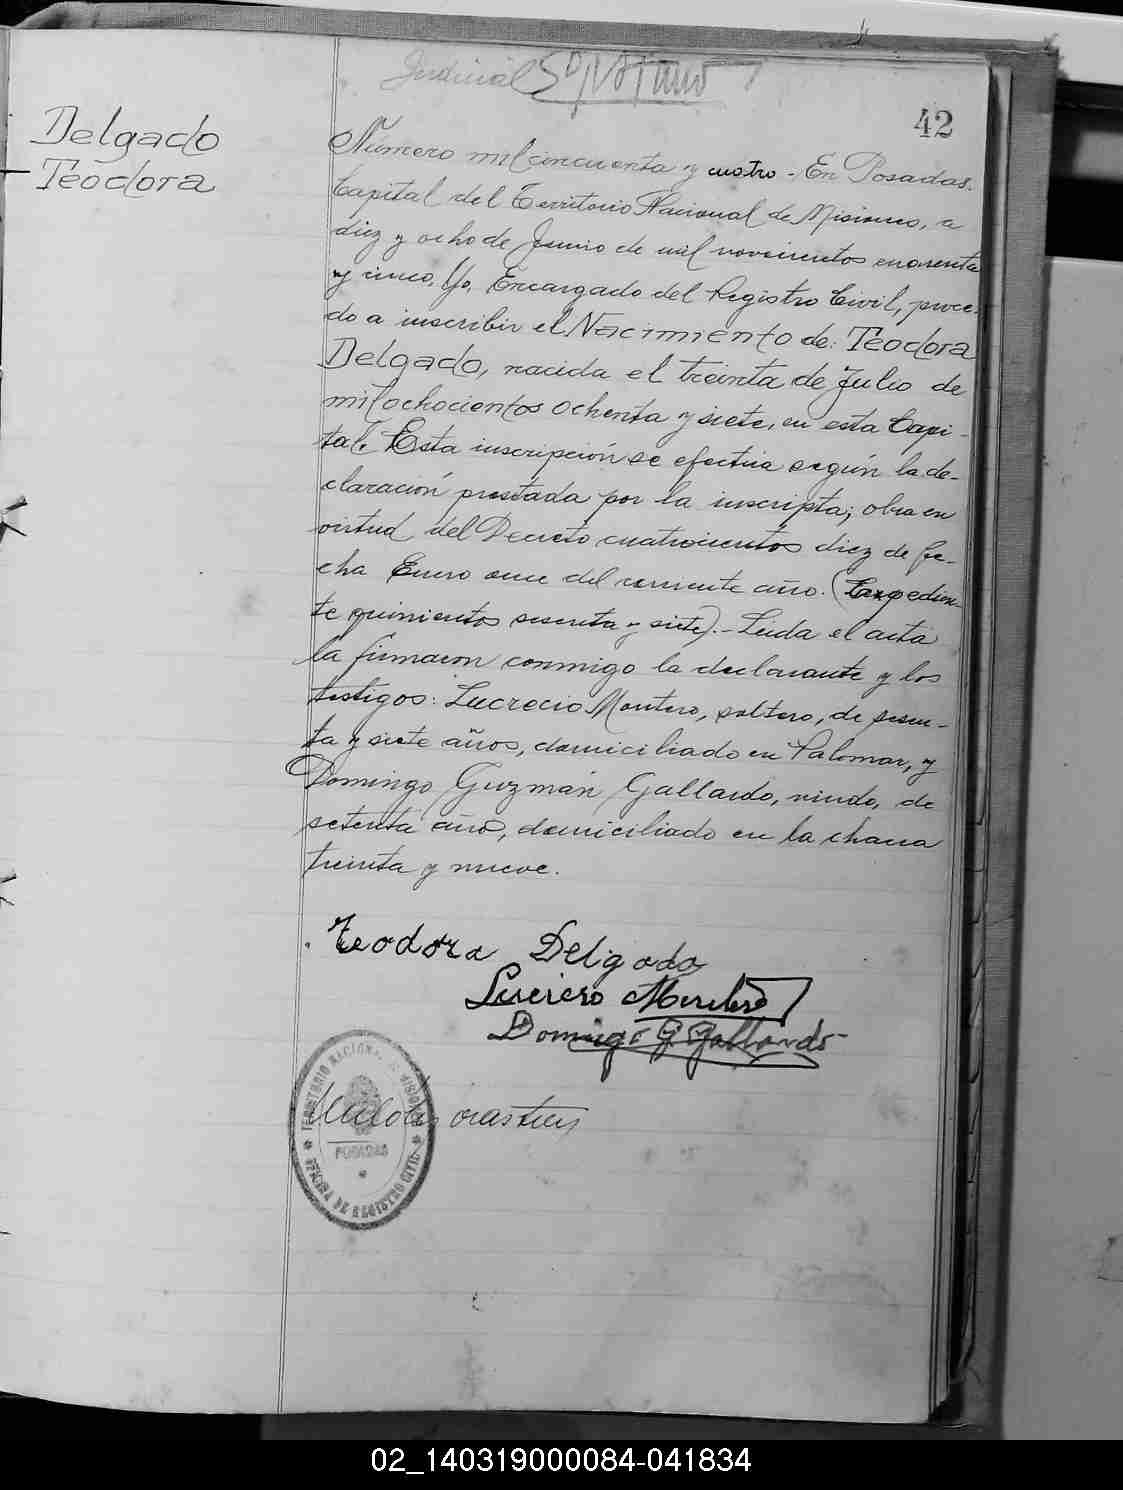 Judicial
42
Delgado
Teodora
Número mil cincuenta y cuatro - En Posadas.
Capital del Territorio Nacional de Misiones, a
diez y ocho de Junio de mil novecientos cuarenta
y cinco, Yo, Encargado del Registro Civil, proce-
do a inscribir el Nacimiento de: Teodora
Delgado, nacida el treinta de Julio de
mil ochocientos ochenta y siete, en esta Capi-
tal. Esta inscripción se efectúa según la de-
claración prestada por la inscripta; obra en
virtud del Decreto cuatrocientos diez de fe-
cha Enero once del corriente año. (Expedien-
te quinientos sesenta y siete).- Leída el acta
la firmaron conmigo la declarante y los
testigos: Lucrecio Montero, soltero, de sesen-
ta y siete años, domiciliado en Palomar, y
Domingo Guzmán Gallardo, viudo, de
setenta años, domiciliado en la chacra
treinta y nueve.
Teodora Delgado
Domingo G Gallardo
TERRITORIO NACIONAL DE MISIONES
POSADAS
OFICINA DE REGISTRO CIVIL
02_140319000084-041834